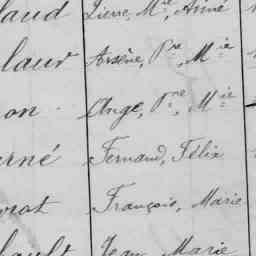 laud Pierre, M.ie, Aimé
laur Arsène, P.re, M.ie
on Ange, P.re, M.ie
rné Fernand, Félix
vrot François, Marie
bault Jean Marie